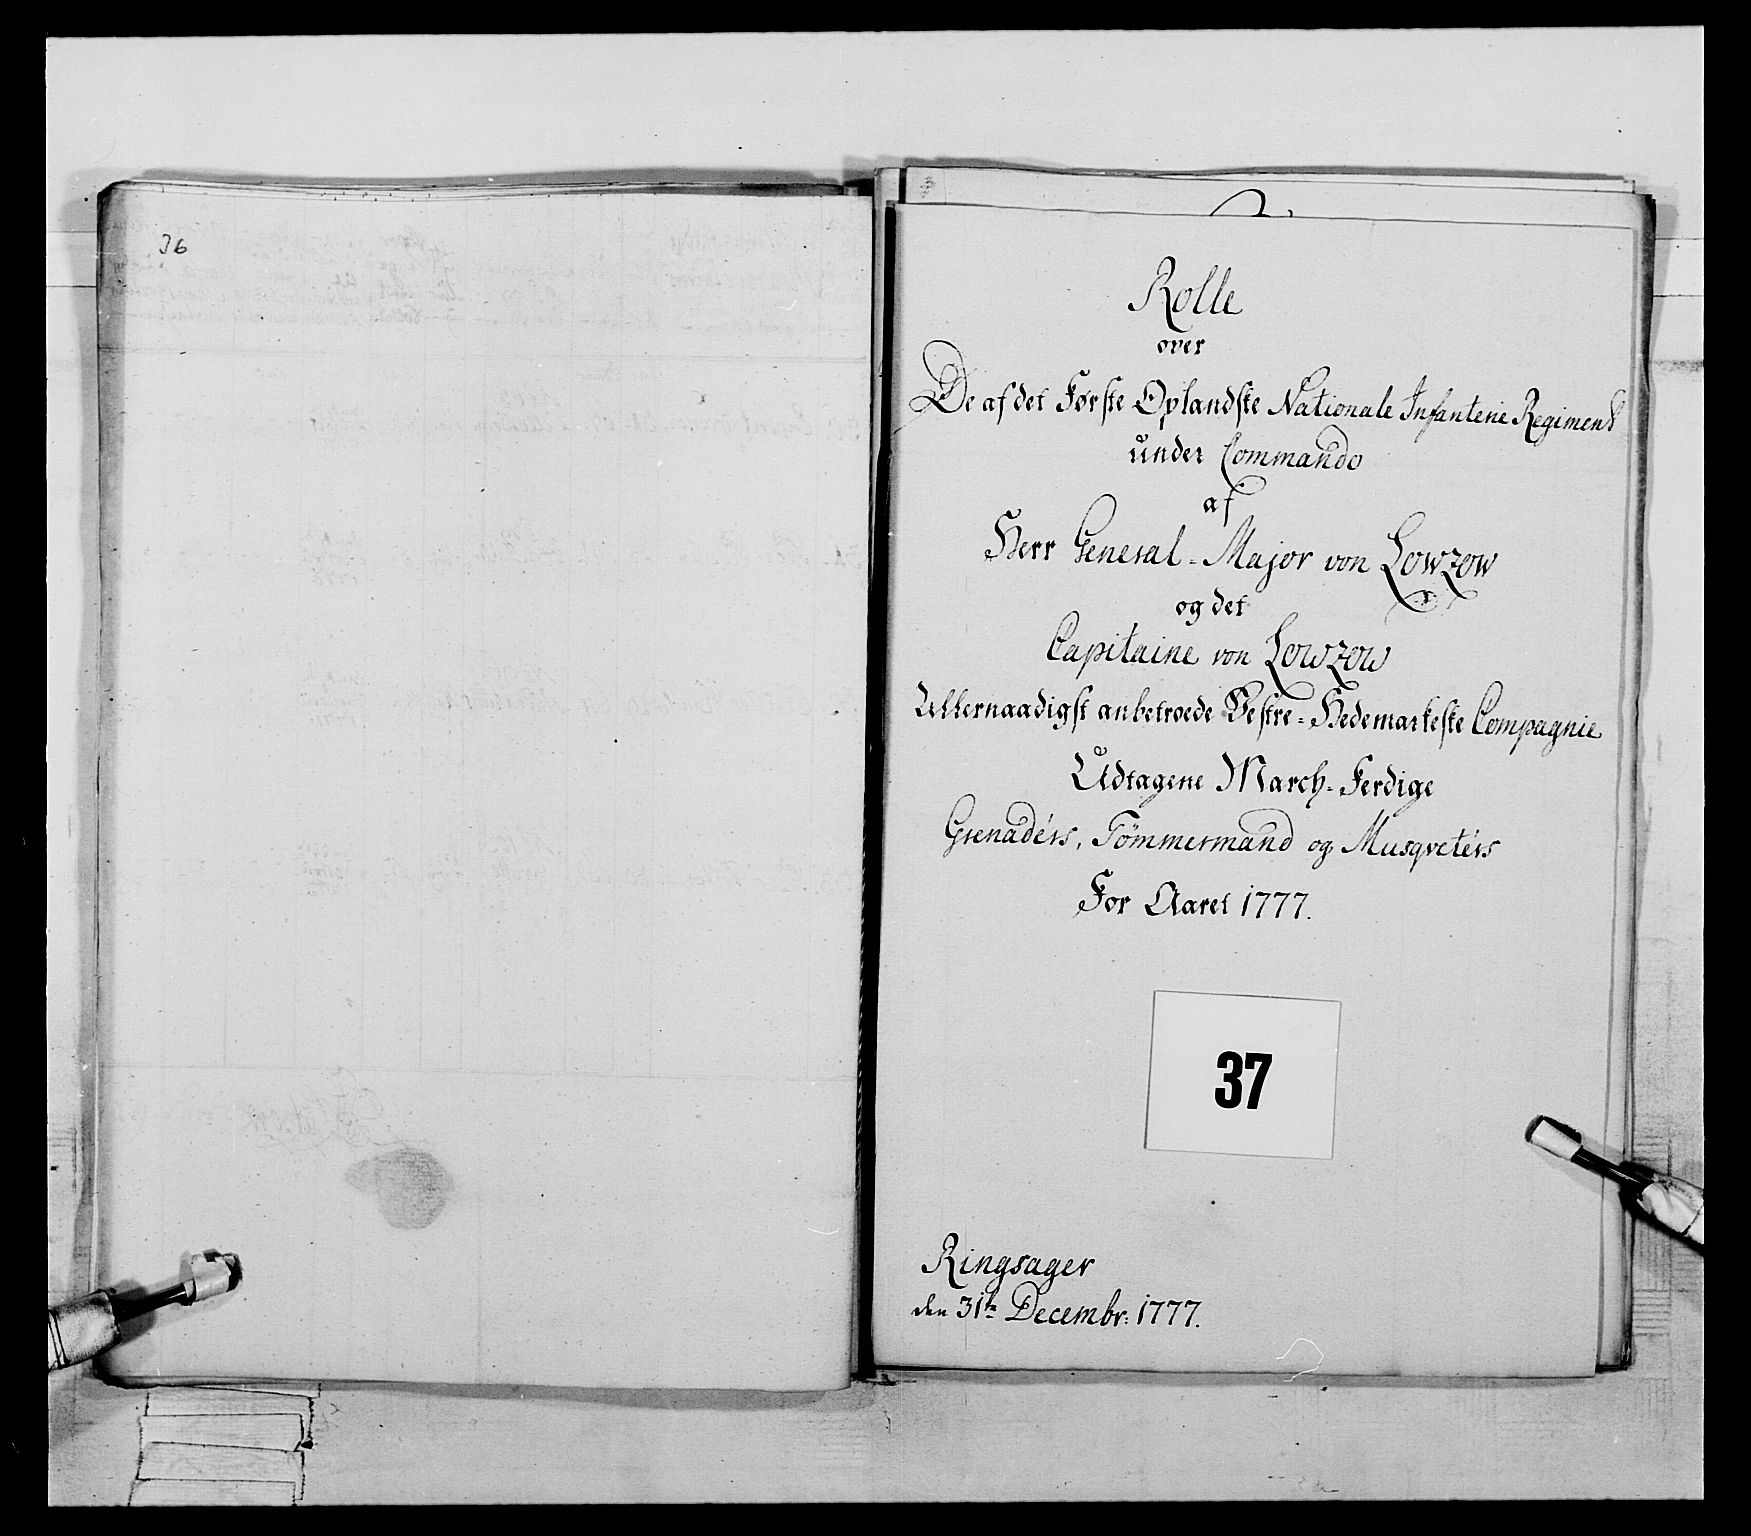 36
Rolle
over
De af det Første Oplandske Nationale Infanterie Regiment
under Commando
af
Herr General-Major von Lowzow
og det
Capitaine von Lowzow
Allernaadigst anbetroede Vestre-Hedemarkeske Compagnie
Udtagene March-Ferdige
Grenadérs, Tömmermand og Musqvetérs
For Aaret 1777.
37
Ringsager
den 31te Decembr: 1777.